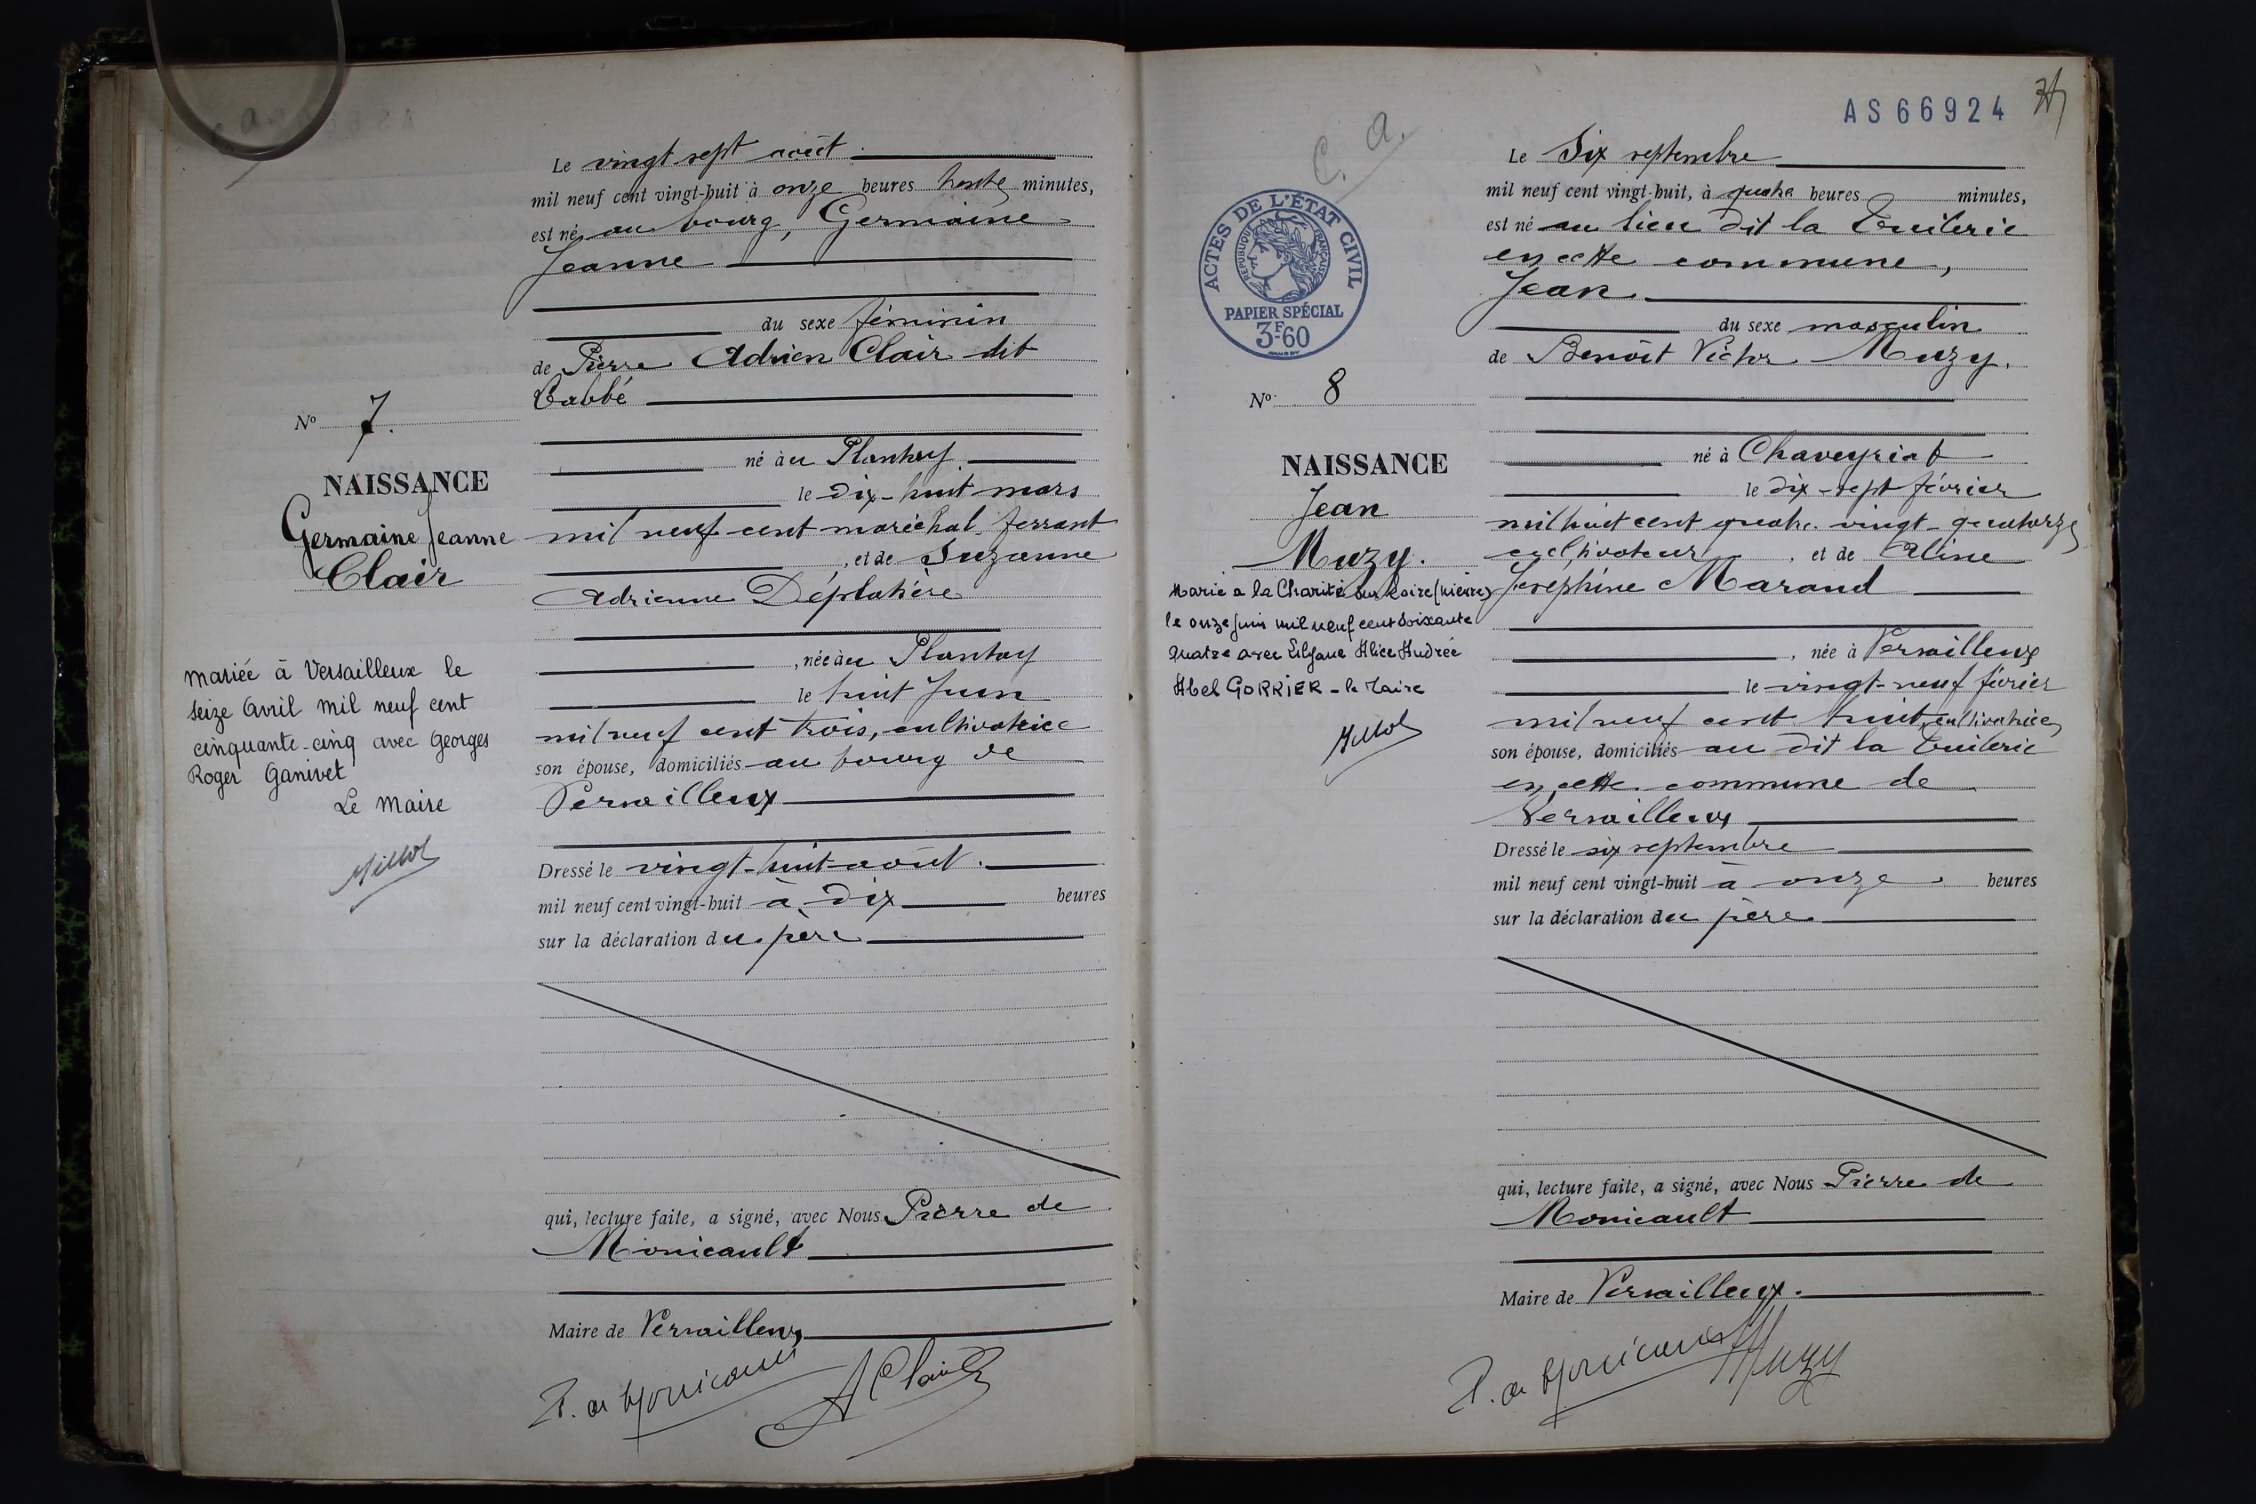 Le vingt sept août
mil neuf cent vingt-huit à onze heures trente minutes,
est né au bourg, Germaine
Jeanne
du sexe féminin
de Pierre Adrien Clair dit
Babbé
né au Plantay
le dix-huit mars
mil neuf cent maréchal ferrant
, et de Suzanne
Adrienne Déplatière
, née au Plantay
le huit Juin
mil neuf cent trois, cultivatrice
son épouse, domiciliés au bourg de
Versailleux
Dressé le vingt-huit août.
mil neuf cent vingt-huit à dix heures
sur la déclaration du père
qui, lecture faite, a signé, avec Nous Pierre de
Monicault
Maire de Versailleux
P. de Monicault
A Clair
No 7.
NAISSANCE
Germaine Jeanne
Clair
Mariée à Versailleux le
seize Avril mil neuf cent
cinquante-cinq avec Georges
Roger Ganivet
Le Maire
Millot
AS66924
C. A.
ACTES DE L'ÉTAT CIVIL
RÉPUBLIQUE FRANÇAISE
PAPIER SPÉCIAL
3F-60
Le Six septembre
mil neuf cent vingt-huit, à quatre heures minutes,
est né au lieu dit la Tuilerie
en cette commune,
Jean
du sexe masculin
de Benoît Victor Muzy.
né à Chaveyriat
le dix-sept février
mil huit cent quatre-vingt-quatorze
cultivateur, et de Aline
Joséphine Marand
, née à Versailleux
le vingt-neuf février
mil neuf cent huit, cultivatrice,
son épouse, domiciliés au dit la Tuilerie
en cette commune de
Versailleux
Dressé le six septembre
mil neuf cent vingt-huit à onze heures
sur la déclaration du père
qui, lecture faite, a signé, avec Nous Pierre de
Monicault
Maire de Versailleux.
P. de Monicault
Muzy
No 8
NAISSANCE
Jean
Muzy.
Marié a la Charité sur Loire (Nièvre)
le onze juin mil neuf cent soixante
quatre avec Lilyane Alice Andrée
Abel GORRIER - le Maire
Millot